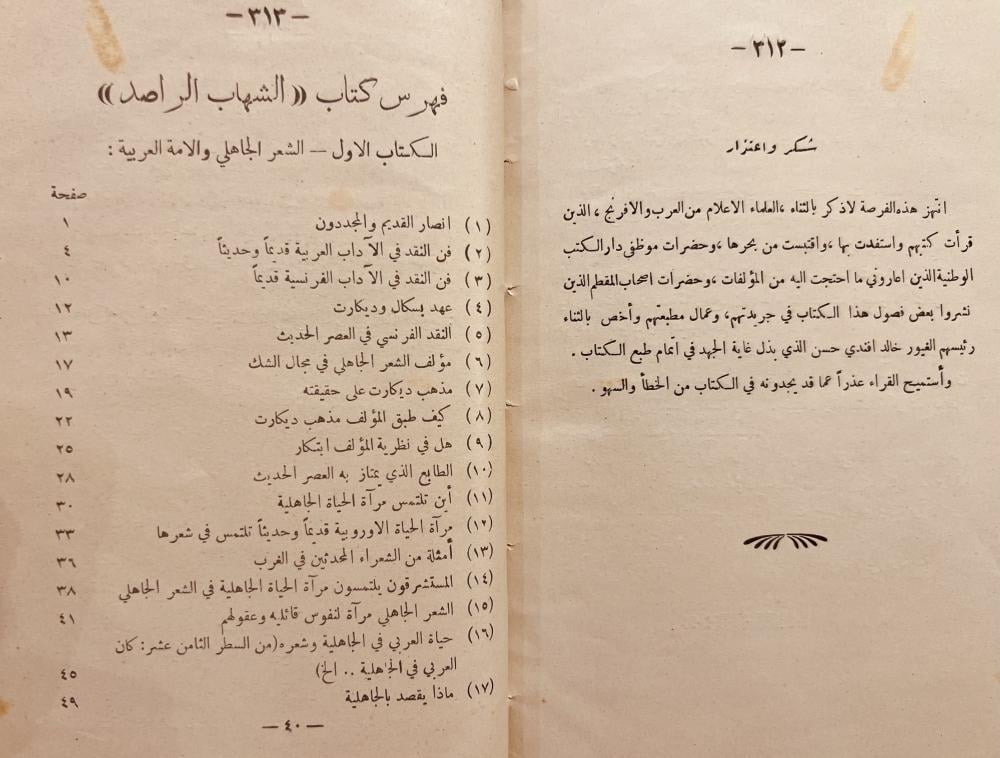 — ٣١٢ —
شكر واعتذار
انتهز هذه الفرصة لاذكر بالثناء ،العلماء الاعلام من العرب والافرنج ، الذين
قرأت كتبهم واستفدت بها ،واقتبست من بحرها ،وحضرات موظفي دار الكتب
الوطنية الذين اعاروني ما احتجت اليه من المؤلفات ،وحضرات اصحاب المقطم الذين
نشروا بعض فصول هذا الكتاب في جريدتهم، وعمال مطبعتهم وأخص بالثناء
رئيسهم الغيور خالد افندي حسن الذي بذل غاية الجهد في اتمام طبع الكتاب .
وأستميح القراء عذراً عما قد يجدونه في الكتاب من الخطأ والسهو .
— ٣١٣ —
فهرس كتاب «الشهاب الراصد»
الكتاب الاول — الشعر الجاهلي والامة العربية :
صفحة
(١) انصار القديم والمجددون ١
(٢) فن النقد في الآداب العربية قديماً وحديثاً ٤
(٣) فن النقد في الآداب الفرنسية قديماً ١٠
(٤) عهد بسكال وديكارت ١٢
(٥) النقد الفرنسي في العصر الحديث ١٣
(٦) مؤلف الشعر الجاهلي في مجال الشك ١٧
(٧) مذهب ديكارت على حقيقته ١٩
(٨) كيف طبق المؤلف مذهب ديكارت ٢٢
(٩) هل في نظرية المؤلف ابتكار ٢٥
(١٠) الطابع الذي يمتاز به العصر الحديث ٢٨
(١١) أين تلتمس مرآة الحياة الجاهلية ٣٠
(١٢) مرآة الحياة الاوروبية قديماً وحديثاً تلتمس في شعرها ٣٣
(١٣) أمثلة من الشعراء المحدثين في الغرب ٣٦
(١٤) المستشرقون يلتمسون مرآة الحياة الجاهلية في الشعر الجاهلي ٣٨
(١٥) الشعر الجاهلي مرآة لنفوس قائليه وعقولهم ٤١
(١٦) حياة العربي في الجاهلية وشعره(من السطر الثامن عشر: كان
العربي في الجاهلية .. الخ) ٤٥
(١٧) ماذا يقصد بالجاهلية ٤٩
— ٤٠ —